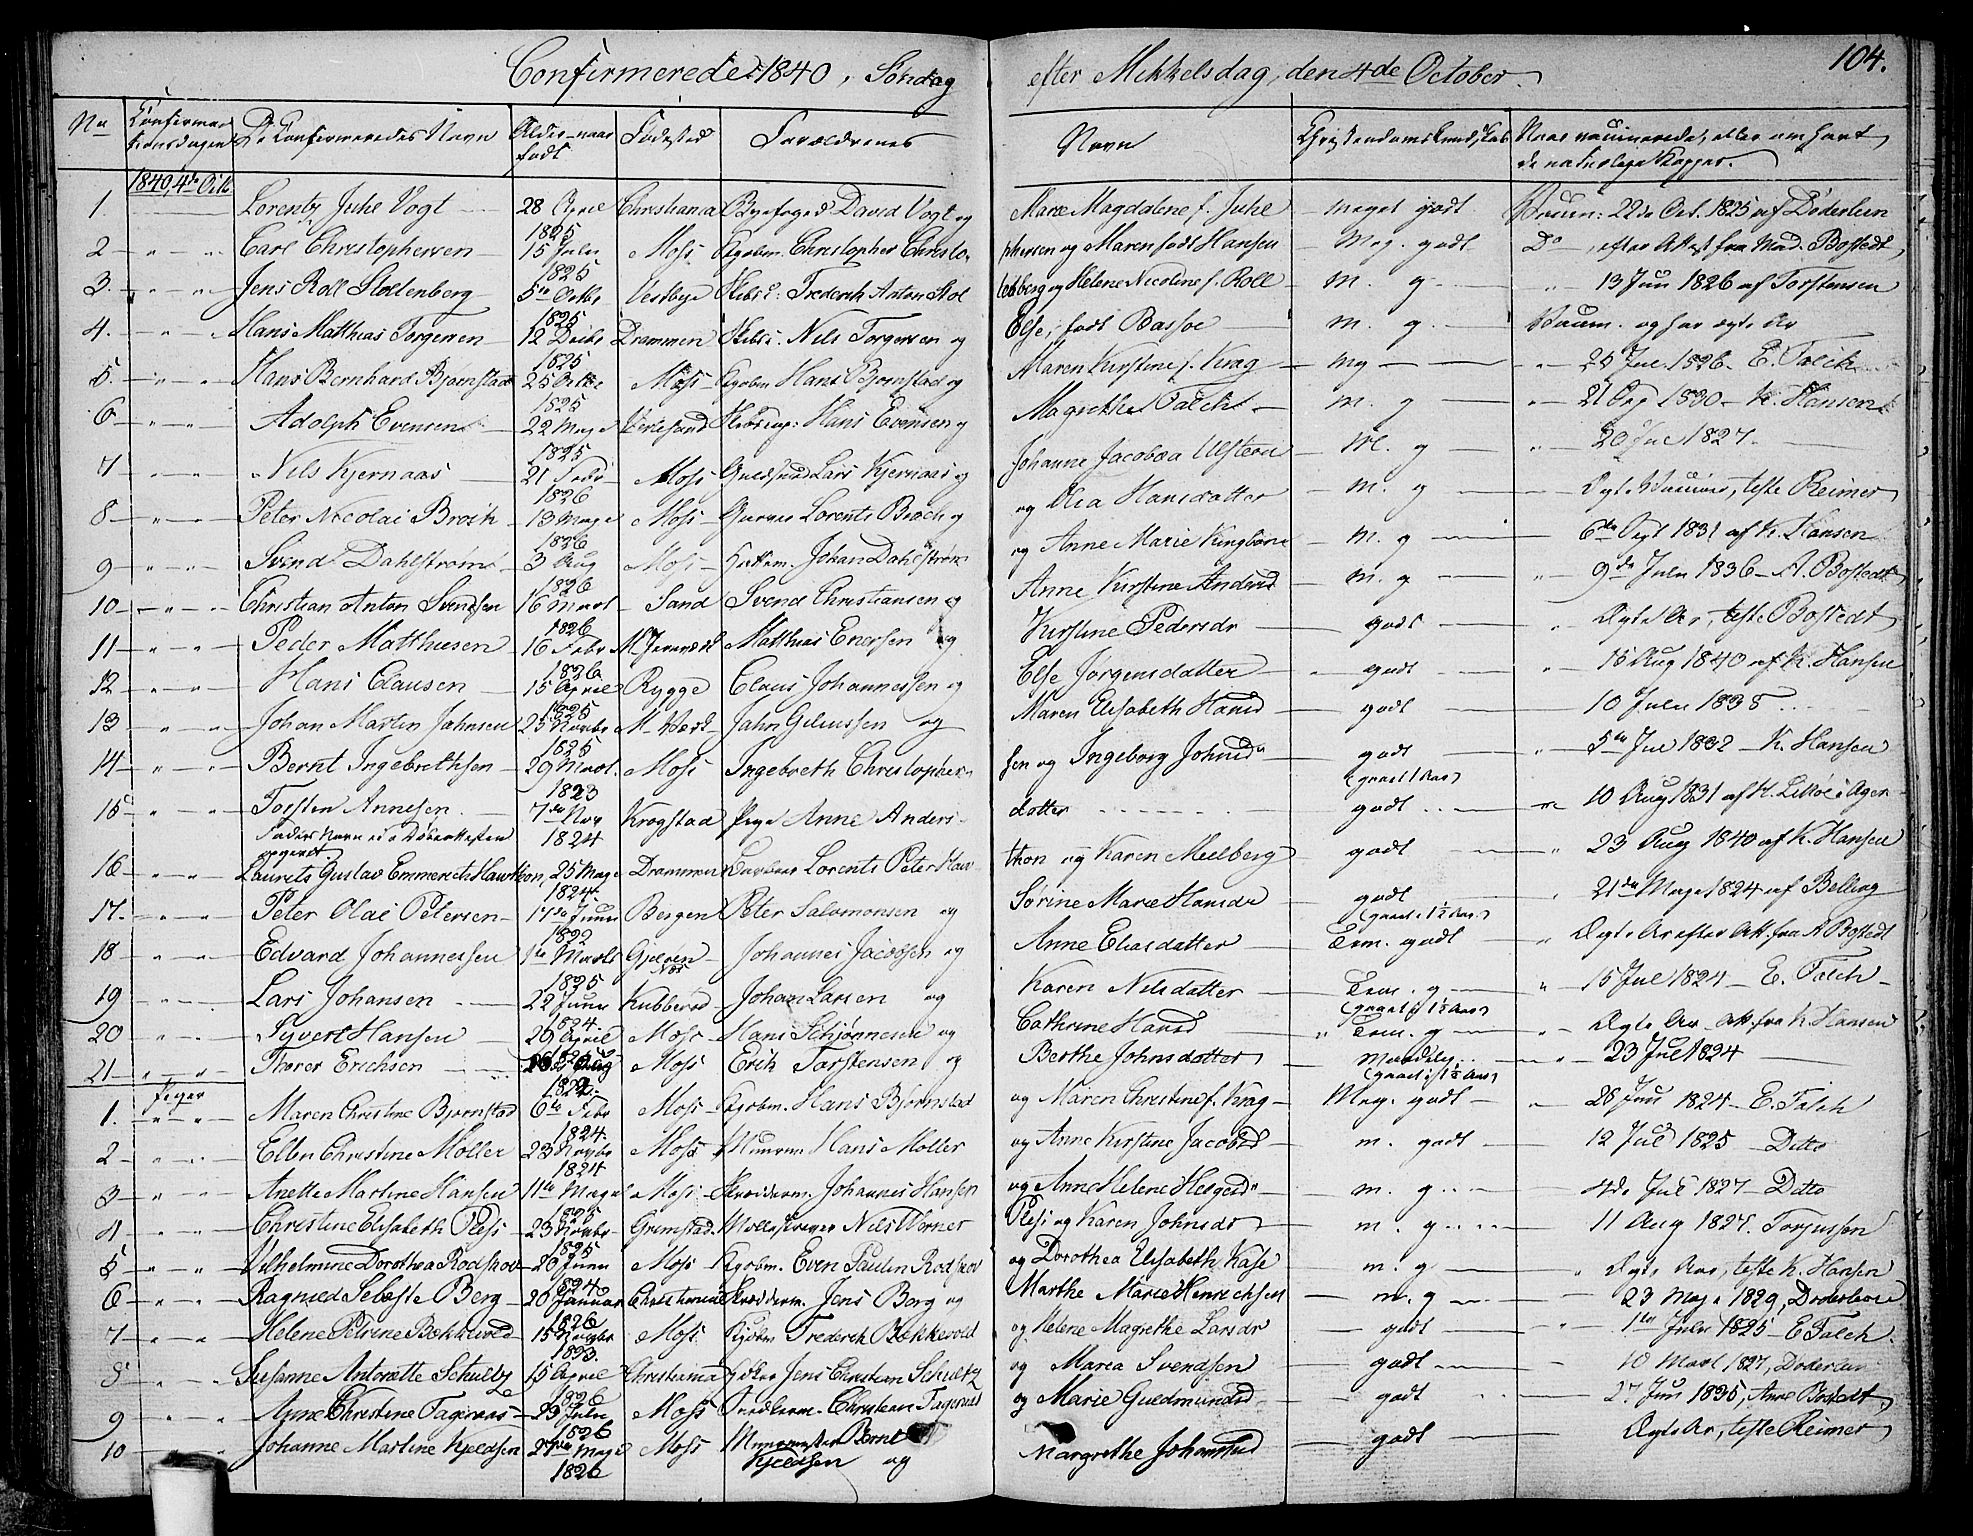 Confirmerede 1840, Søndag efter Mikkelsdag, den 4de October. 104.
No Confirmationsdagen De Confirmeredes Navn Alder naar født Fødested Forældrenes Navn Christendomskundskab Naar vaccinerede, eller om havt de naturlige Kopper.
1840, 4de Octb
1. Lorentz Juhe Vogt 28 April 1825 Christiania Byefoged David Vogt og Marie Magdalene f. Juhe meget godt Vaccin: 22de Oct. 1825 af Døderlein
2 " " Carl Christophersen 15 Julii 1825 Moss Kjøbm. Christopher Christophersen og Maren født Hansen Meg. godt Do , efter Attest fra Mad. Bostedt
3. " " Jens Roll Stoltenberg 5te Octbr 1825 Vestbye Skibsc: Frederik Anton Stoltenberg og Helene Nicoline f. Roll m. g. " 13 Juni 1826 af Torstensen
4. " " Hans Matthias Torgersen 12 Decbr 1825 Drammen Skibsc. Nils Torgersen og Else, født Bassøe m. g. Vaccin. og har ægte Ar
5. " " Hans Bernhard Bjørnstad 25 Octbr 1825 Moss Kjøbm Hans Bjørnstad og Maren Kirstine f. Krag m g " 25 Jul. 1826. E. Falch
6 " " Adolph Evensen 22 Maj 1825 Skibscap: Hans Evensen og Magrethe Falch m. g " 21 1830 K. Hansen
7 " " Nils Kjernaas 21 Febr 1826 Moss Guldsmed Lars Kjernaas og Johanne Jacobæa Ulstein M. g " 20 Jul 1827.
8 " " Peter Nicolai Broch 13 Maj 1826 Moss Garver Lorents Broch og og Olea Hansdatter m. g " Ægte Vaccine, teste Reimer
9 " " Svend Dahlstrøm 3 Aug 1826 Moss Johan Dahlstrøm og Anne Marie m. g 6te Sept 1831 af K. Hansen
10 " " Christian Anton Svendsen 16 Mart. 1826 Sand Svend Christiansen og Anne Kirstine Andersd m. g " 9de Julii 1836 A. Bostedt
11 " " Peder Matthiesen 16 Febr 1826 Matthias Enersen og Kirstine Pedersdr godt " Ægte Ar, teste Bostedt
12 " " Hans Clausen 15 April 1825 Rygge Claus Johannessen og Else Jørgensdatter godt " 15 Aug 1840 af K. Hansen
13 " " Johan Martin Jahnsen 25 Novbr 1825 Jahn og Maren Elisabeth Hansd godt 10 Julii 1838
14 " " Bernt Ingebrethsen 29 Mart. 1823 Moss Ingebreth Christophersen og Ingeborg Johnsd godt " 5te Jul 1832 K. Hansen
15 " " Torsten Annesen. 7de Nov 1824 Krogstad Pige Anne Andersdatter (gaaet 1 Aar) godt 10 Aug 1831 af H.
Faders Navn ei i Døbeattesten opgivet
16 " " Laurits Gustav Emmerets Hawthon, 25 Maj 1824. Drammen Lorents Peter Hawthon og Karen Meelberg godt " 23 Aug 1840 af K. Hansen
17. " " Peter Olai Petersen 17de Juni 1822 Bergen Peter Salomonsen og Sørine Marie Hansdr godt " 21de Maj 1824 af Belling
18 " " Edvard Johannesen 1te Marts 1825 Johannes Jacobsen og Anne Eliasdatter (gaaet i 1½ Aar) Tem. godt " Ægte Ar efter Att. fra A Bostedt
19 " " Lars Johansen 22 Juni 1824. Kubberød Johan Larsen og Karen Nilsdatter Tem. g " 15 Jul 1824 E. Falch
20 " " Syvert Hansen 29 April Moss Hans og Cathrine Hansd (gaaet i 1½ Aar) Tem. g " Ægte Ar Att. fra K. Hansen
21 " " Thorer Erichsen Moss Erik Torstensen og Berthe Johnsdatter Maadelig " 23 Jul 1824
Piger
1. " " Maren Christine Bjørnstad 6te Febr 1824. Moss Kjøbm. Hans Bjørnstad og Maren Christine f. Krag (gaaet i 1½ Aar) Meg. godt " 28 Juni 1824 E. Falch
2 " " Ellen Christine Møller 23 Novbr 1824 Moss Muurm Hans Møller og Anne Kirstine Jacobsd m. godt 12 Jul 1825 Ditto
3 " " Anette Martine Hansen 11te Maj 1825 Moss Skræderm. Johannes Hansen og Anne Helene m. g 4de Jul 1827 Ditto
4 " " Christine Elisabeth Pless 23 Novbr 1825 Grimstad Nils Werner Pless og Karen Johnsdr m. g 11 Aug 1827. Torgussen
5 " " Vilhelmine Dorothea Rødskov 20 Juni 1824 Moss Kjøbm. Even Paulin Rødskov og Dorothea Elisabeth m. g " Ægte Ar, teste K. Hansen
6 " " Ragnild Seleste Berg 20 Januar 1826 Christiania Skræderm. Jens Berg og Marthe Marie Henrichsen m. g 23 Maj 1829, Døderlein
7 " " Helene Petrine Bækkevold 15 Novbr 1823. Moss Kjøbm Frederik Bækkevold og Helene Magrethe Larsdr godt " 1te Julii 1825 E Falch
8 " " Susanne Antonette Schultz 15 April 1826 Christiania Jens Christian Schultz og Maria Svendsen godt 10 Mart 1827, Døderlein
9 " " Anne Christine Fagernæs 29 Julii 1826 Moss Snedkerm. Christian Fagernæs og Marie Guldmundsd godt 27. Juni 1835, Anne Bostedt
10 " Johanne Martine Kjeldsen 27de Maj 1826 Moss Bernt Kjeldsen og Margrethe godt Ægte Ar, teste Reimer